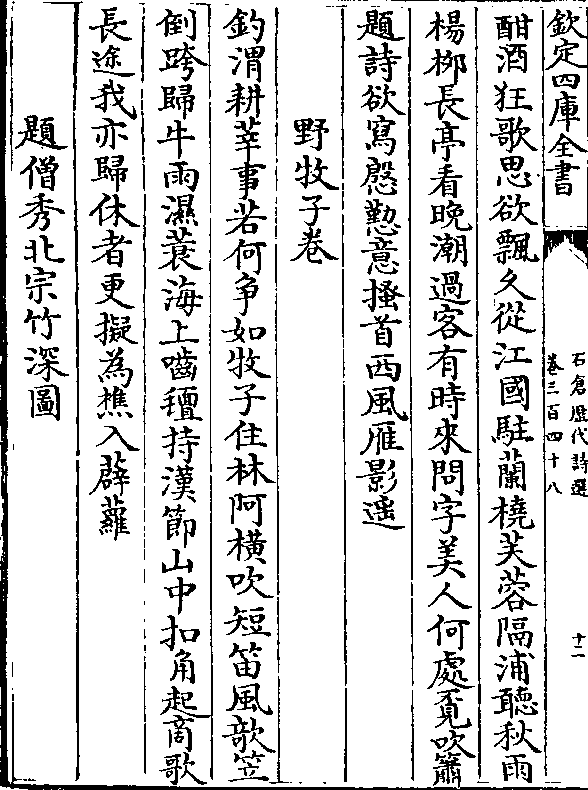 欽定四庫全書
石倉歷代詩選
卷三百四十八
十二
酣酒狂歌思欲飄久從江國駐蘭橈芙蓉隔浦聽秋雨
楊柳長亭看晚潮過客有時來問字美人何處覔吹簫
題詩欲寫慇懃意搔首西風雁影遥
野牧子卷
釣渭耕莘事若何争如牧子住林阿橫吹短笛風欹笠
倒跨歸牛雨濕蓑海上嚙氊持漢節山中扣角起商歌
長途我亦歸休者更擬為樵入薜蘿
題僧秀北宗竹深圖